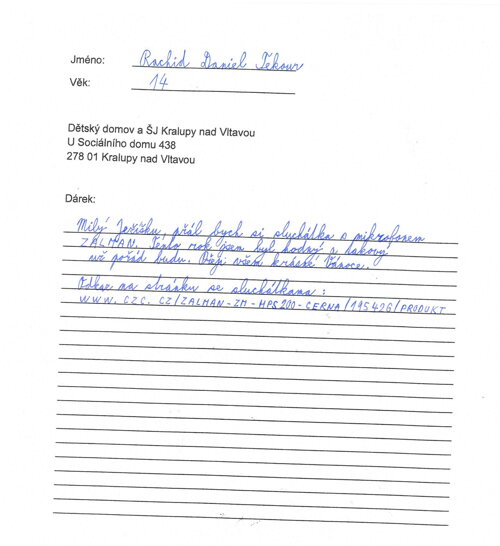 Jméno: Rachid Daniel Tekour
Věk: 14
Dětský domov a ŠJ Kralupy nad Vltavou
U Sociálního domu 438
278 01 Kralupy nad Vltavou
Dárek:
Milý Ježíšku, přál bych si sluchátka s mikrofonem
ZALMAN. Tento rok jsem byl hodný a takový
už pořád budu. Přeji všem krásné Vánoce.
Odkaz na stránku se sluchátkama:
WWW.CZC.CZ/ZALMAN-ZM-HPS200-CERNA/195426/PRODUKT